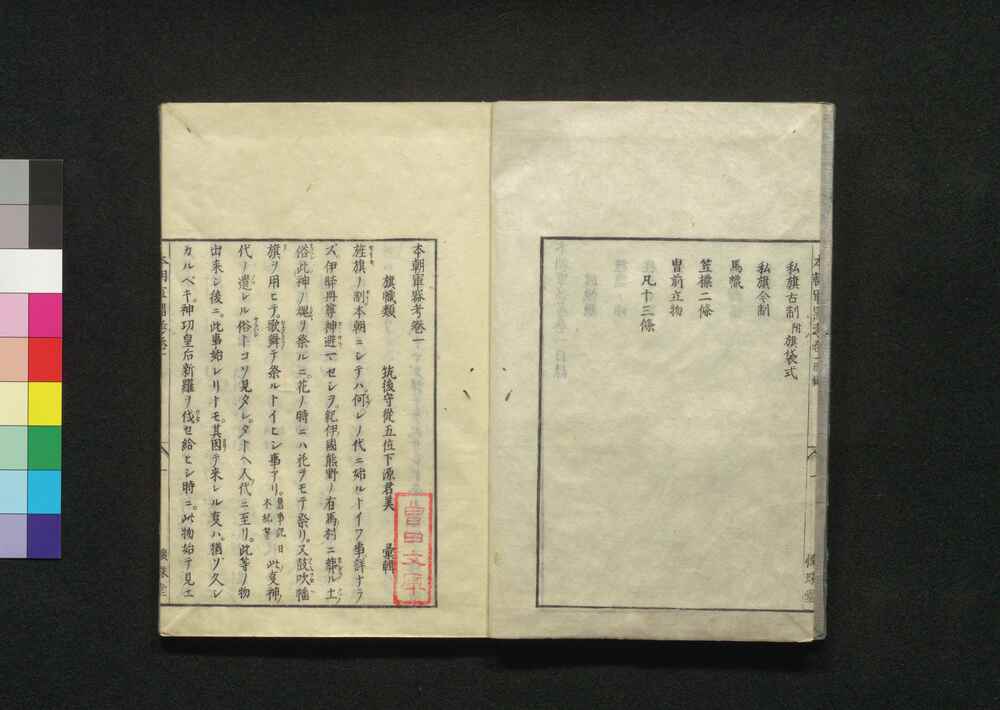 私旗古制 附旗袋式
私旗今制
馬幟
笠標二條
冑前立物
凡十三條
本朝軍器考卷一
旗幟類　筑後守從五位下源君美　彙輯
旌旗ノ制本朝ニシテハ何レノ代ニ始ルトイフ事詳ナラ
ズ伊弉冊尊神避マセシヲ紀伊國熊野ノ有馬村ニ葬ル土
俗此神ノ魂ヲ祭ルニ花ノ時ニハ花ヲモテ祭リ又鼓吹幡
旗ヲ用ヒテ歌舞テ祭ルトイヒシ事アリ舊事記日本紀等此支神
代ノ遺レル俗トコソ見タレタトヘ人代ニ至リ此等ノ物
出来シ後ニ此事始レリトモ其因テ来レル支ハ猶ソ久シ
カルベキ神功皇后新羅ヲ伐セ給ヒシ時ニ此物始テ見エ
曽田文庫